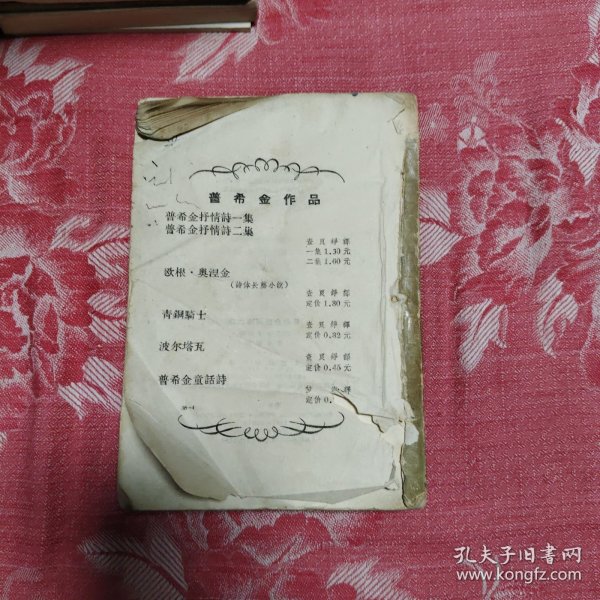 普希金作品
普希金抒情詩一集
普希金抒情詩二集
查良錚譯
一集1.30元
二集1.60元
欧根·奥涅金
(詩体长篇小說)
查良錚譯
定价1.30元
青銅騎士
查良錚譯
定价0.32元
波尔塔瓦
查良錚譯
定价0.45元
普希金童話詩
譯
定价0.
孔夫子旧书网
www.kongfz.com